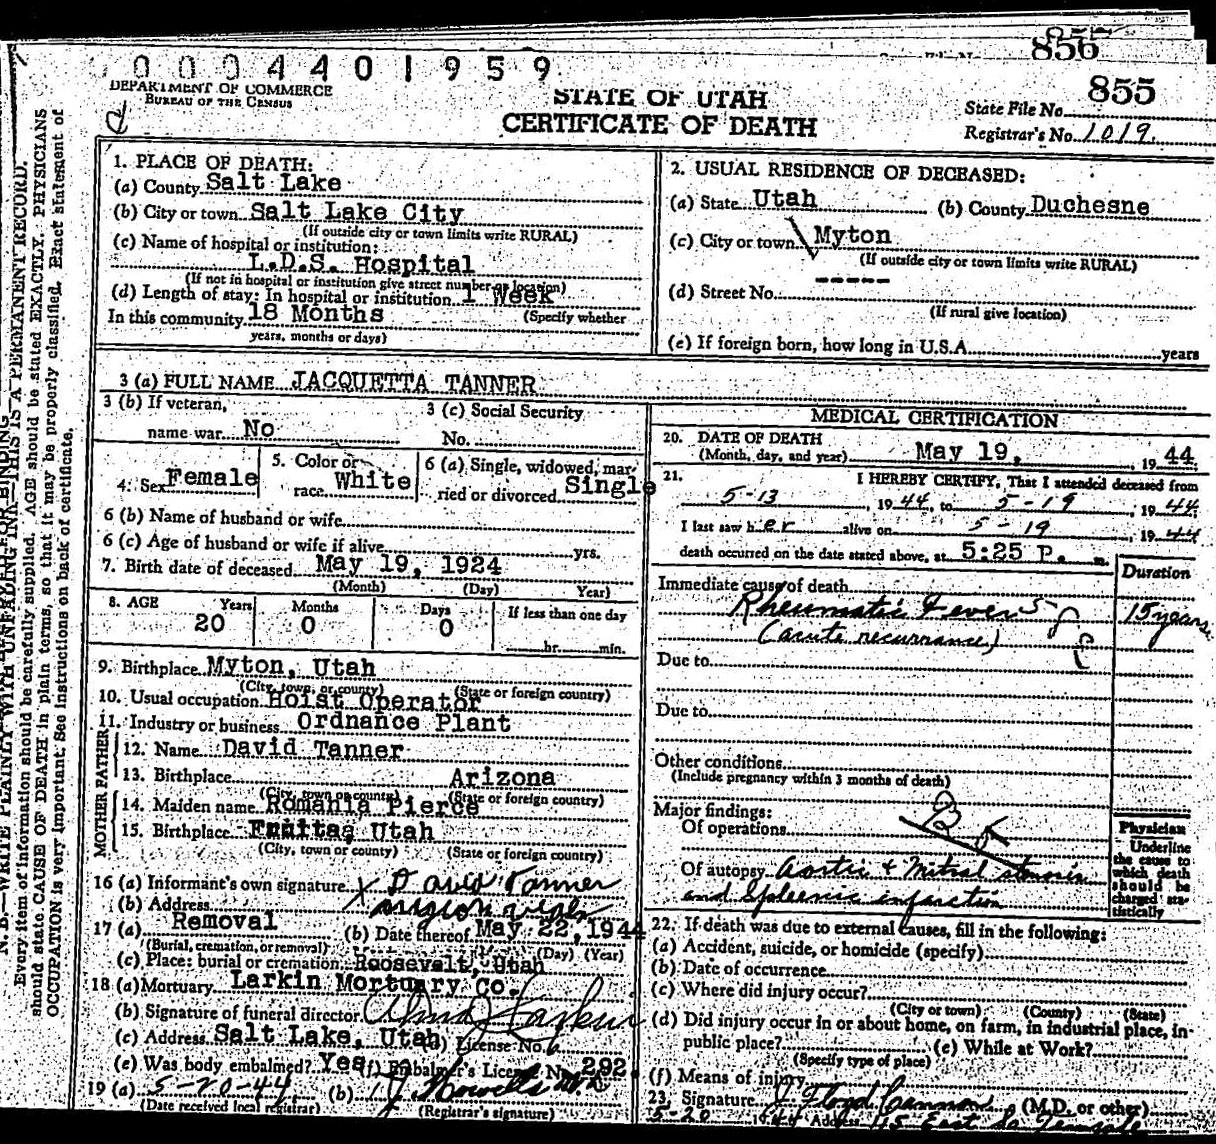 856
0 0 0 4 4 0 1 9 5 9
DEPARTMENT OF COMMERCE
BUREAU OF THE CENSUS
STATE OF UTAH
CERTIFICATE OF DEATH
State File No. 855
Registrar's No. 1019.
N. B.—WRITE PLAINLY WITH UNFADING INK—THIS IS A PERMANENT RECORD.
Every item of information should be carefully supplied. AGE should be stated EXACTLY. PHYSICIANS
should state CAUSE OF DEATH in plain terms, so that it may be properly classified. Exact statement of
OCCUPATION is very important. See instructions on back of certificate.
1. PLACE OF DEATH:
(a) County Salt Lake
(b) City or town Salt Lake City
(If outside city or town limits write RURAL)
(c) Name of hospital or institution:
L.D.S. Hospital
(If not in hospital or institution give street number or location)
(d) Length of stay: In hospital or institution 1 Week
In this community 18 Months (Specify whether
years, months or days)
2. USUAL RESIDENCE OF DECEASED:
(a) State Utah (b) County Duchesne
(c) City or town Myton
(If outside city or town limits write RURAL)
(d) Street No. -----
(If rural give location)
(e) If foreign born, how long in U.S.A. years
3 (a) FULL NAME JACQUETTA TANNER
3 (b) If veteran,
name war No
3 (c) Social Security
No.
4. Sex Female
5. Color or
race White
6 (a) Single, widowed, mar-
ried or divorced Single
6 (b) Name of husband or wife
6 (c) Age of husband or wife if alive yrs.
7. Birth date of deceased May 19, 1924
(Month) (Day) Year)
8. AGE Years Months Days If less than one day
20 0 0 hr. min.
9. Birthplace Myton, Utah
(City, town, or county) (State or foreign country)
10. Usual occupation Hoist Operator
11. Industry or business Ordnance Plant
FATHER
12. Name David Tanner
13. Birthplace Arizona
(City, town or county) (State or foreign country)
MOTHER
14. Maiden name Romania Pierce
15. Birthplace Utah
(City, town or county) (State or foreign country)
16 (a) Informant's own signature X David Tanner
(b) Address
17 (a) Removal (b) Date thereof May 22, 1944
(Burial, cremation, or removal) (Day) (Year)
(c) Place: burial or cremation Roosevelt, Utah
18 (a) Mortuary Larkin Mortuary Co.
(b) Signature of funeral director
(c) Address Salt Lake, Utah (d) License No.
(e) Was body embalmed? Yes (f) Embalmer's License No. 292.
19 (a) 5-20-44 (b)
(Date received local registrar) (Registrar's signature)
MEDICAL CERTIFICATION
20. DATE OF DEATH
(Month, day, and year) May 19, 19 44
21. I HEREBY CERTIFY, That I attended deceased from
5-13, 19 44, to 5-19, 19 44.
I last saw h er alive on 5-19, 19 44
death occurred on the date stated above, at 5:25 P. m.
Duration
Immediate cause of death
Rheumatic Fever 15 years.
(acute recurrance)
Due to
Due to
Other conditions
(Include pregnancy within 3 months of death)
Major findings:
Of operations
Of autopsy Aortic & Mitral stenosis
and Spleenic infarction
Physician
Underline
the cause to
which death
should be
charged sta-
tistically
22. If death was due to external causes, fill in the following:
(a) Accident, suicide, or homicide (specify)
(b) Date of occurrence
(c) Where did injury occur?
(City or town) (County) (State)
(d) Did injury occur in or about home, on farm, in industrial place, in
public place? (e) While at Work?
(Specify type of place)
(f) Means of injury
23. Signature J. Floyd Cannon (M.D. or other)
5-20 1944 Address 115 East So. Temple